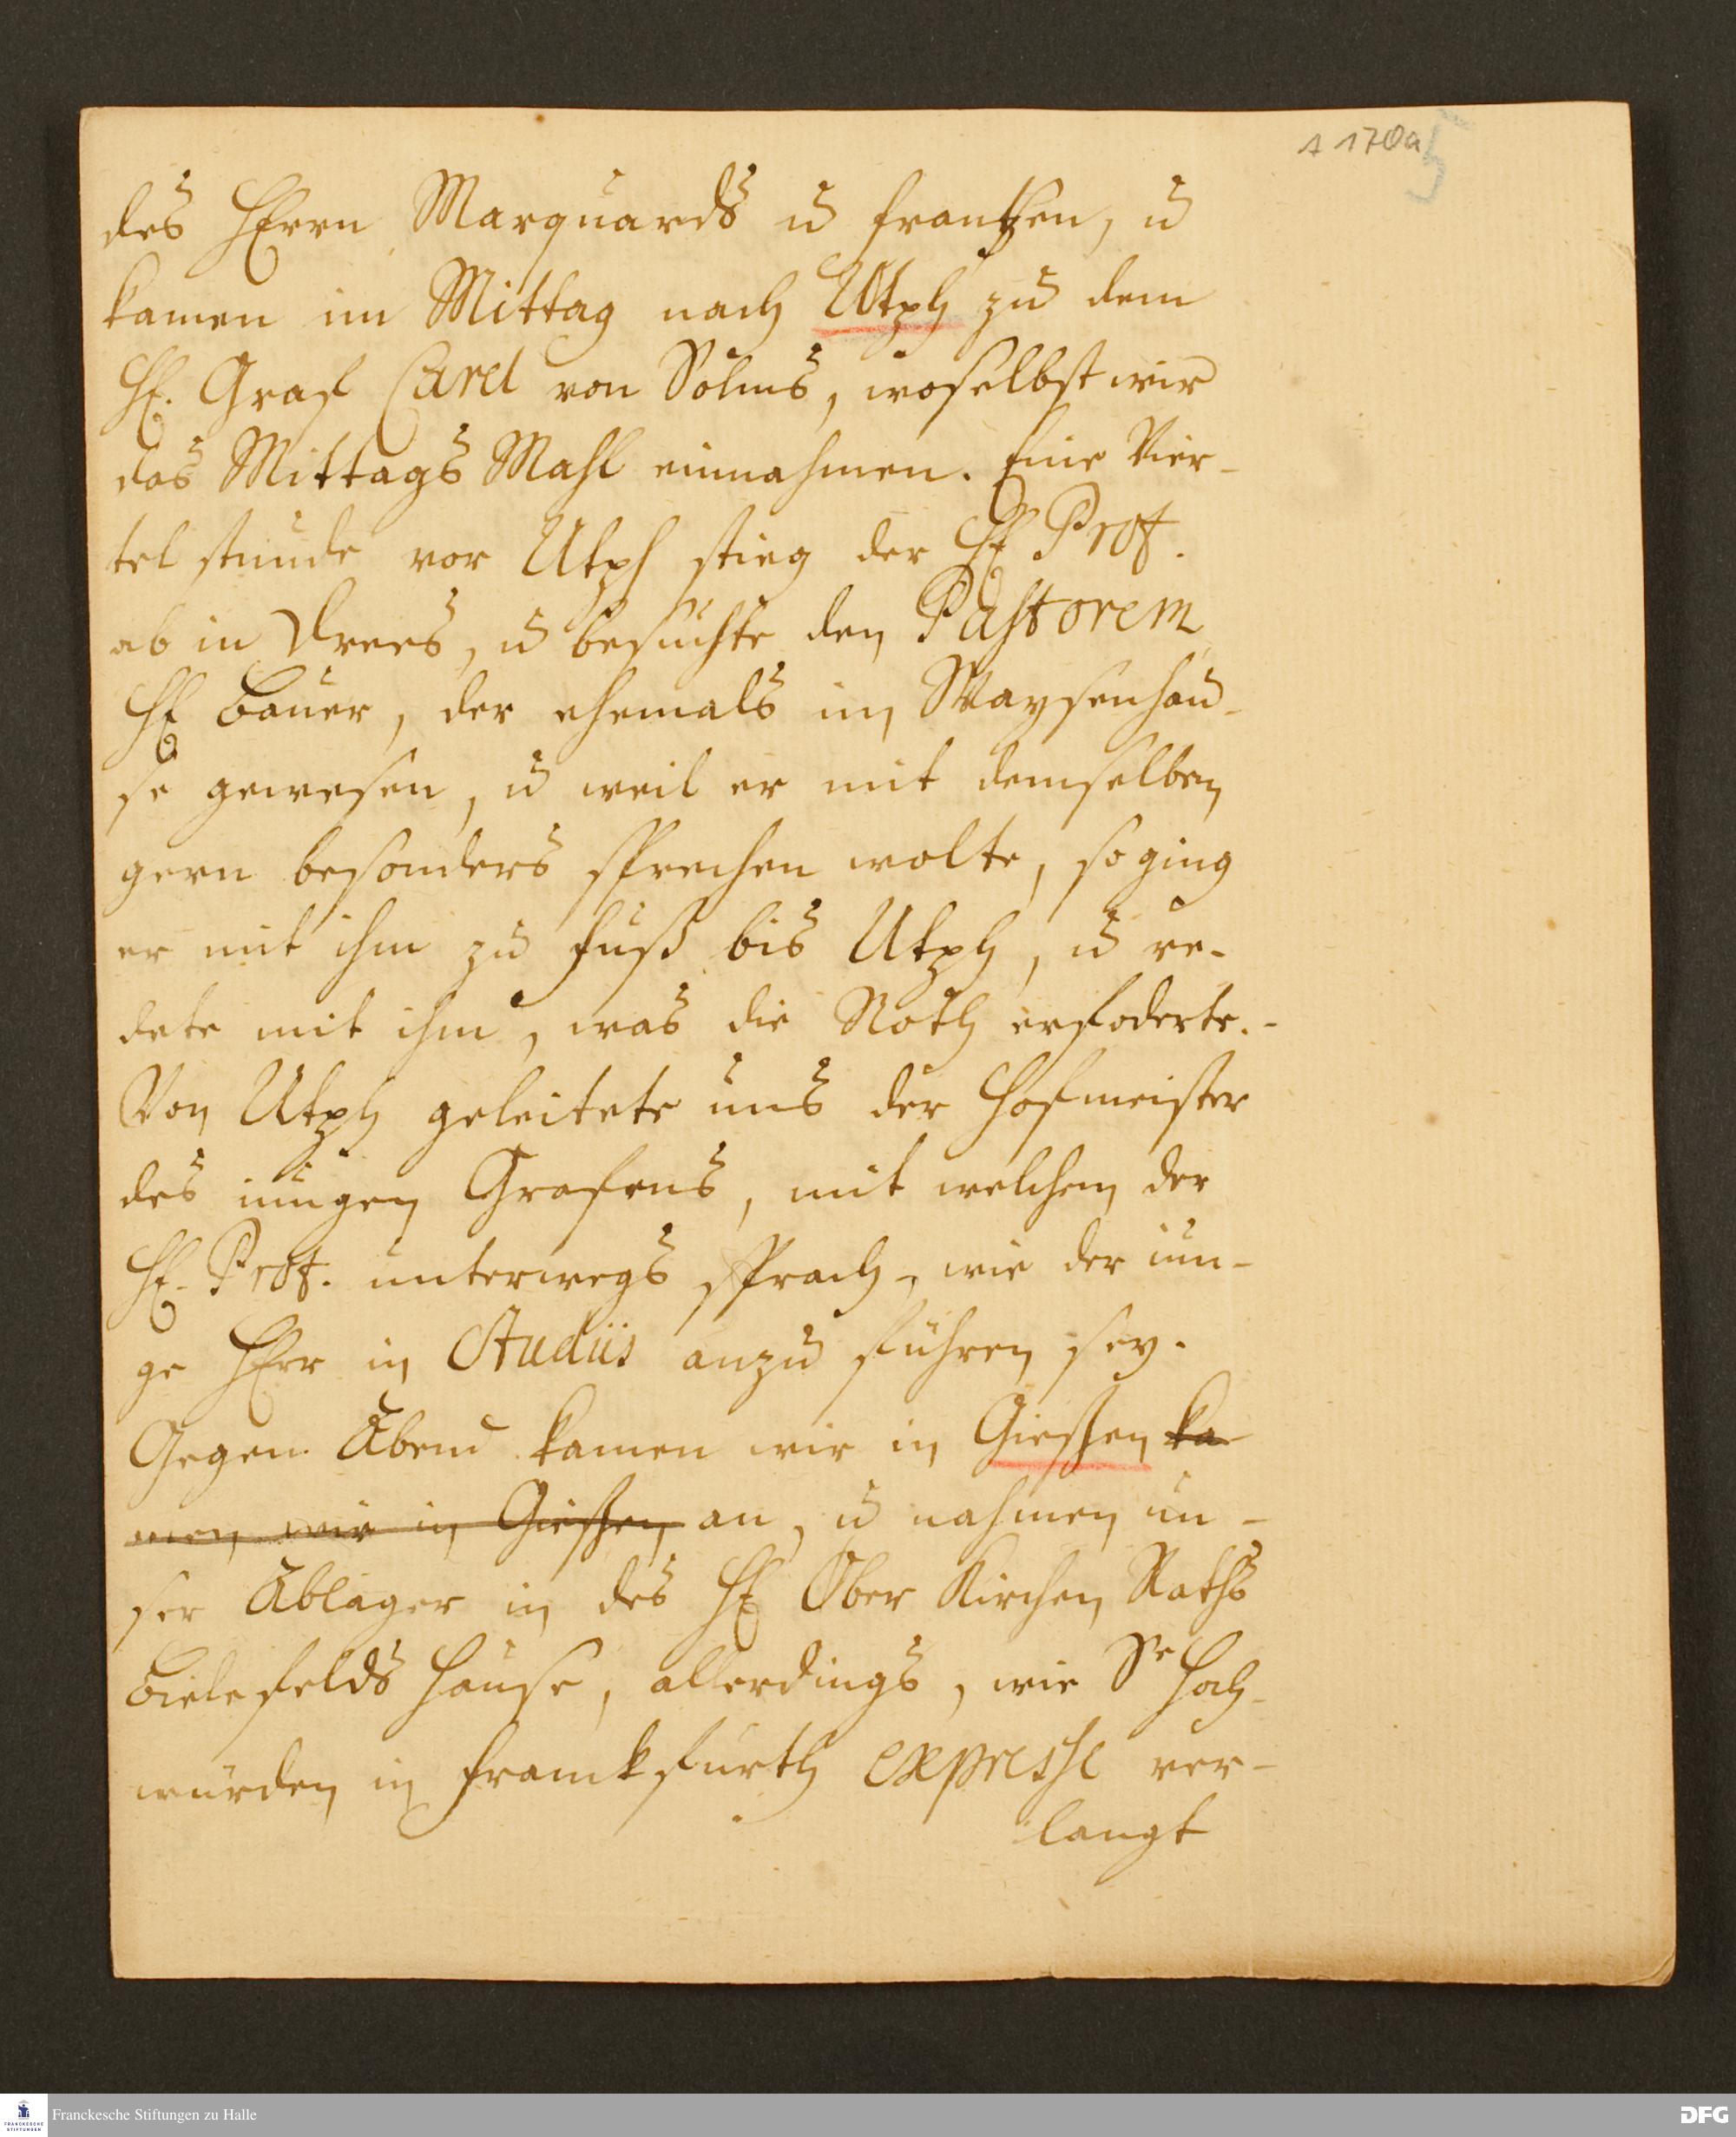 1 170a
des HErrn Marquards u frantzen, u
kamen im Mittag nach Utph zu dem
H. Graf Carel von Solms, woselbst wir
das Mittags Mahl einnahmen. Eine Vier-
tel stunde vor Utph stieg der H Prof.
ab in Trees, u besuchte den Pastorem
H Bauer, der ehemals im Waysenhau-
se gewesen, u weil er mit demselben
gern besonders sprechen wolte, so ging
er mit ihm zu fuß bis Utph, u re-
dete mit ihm, was die Noth erfoderte.-
Von Utph geleitete uns der Hofmeister
des iungen Grafens, mit welchem der
H. Prof. unterwegs sprach, wie der iun-
ge HErr in Studiis anzu führen sey.
Gegen Abend kamen wir in Giessen ka
men wir in Giessen an, u nahmen un-
ser Ablager in des H Ober Kirchen Raths
Bielefelds Hause, allerdings, wie Se Hoch-
würden in franckfurth expresse ver-
langt
Franckesche Stiftungen zu Halle
FRANCKESCHE
STIFTUNGEN
DFG